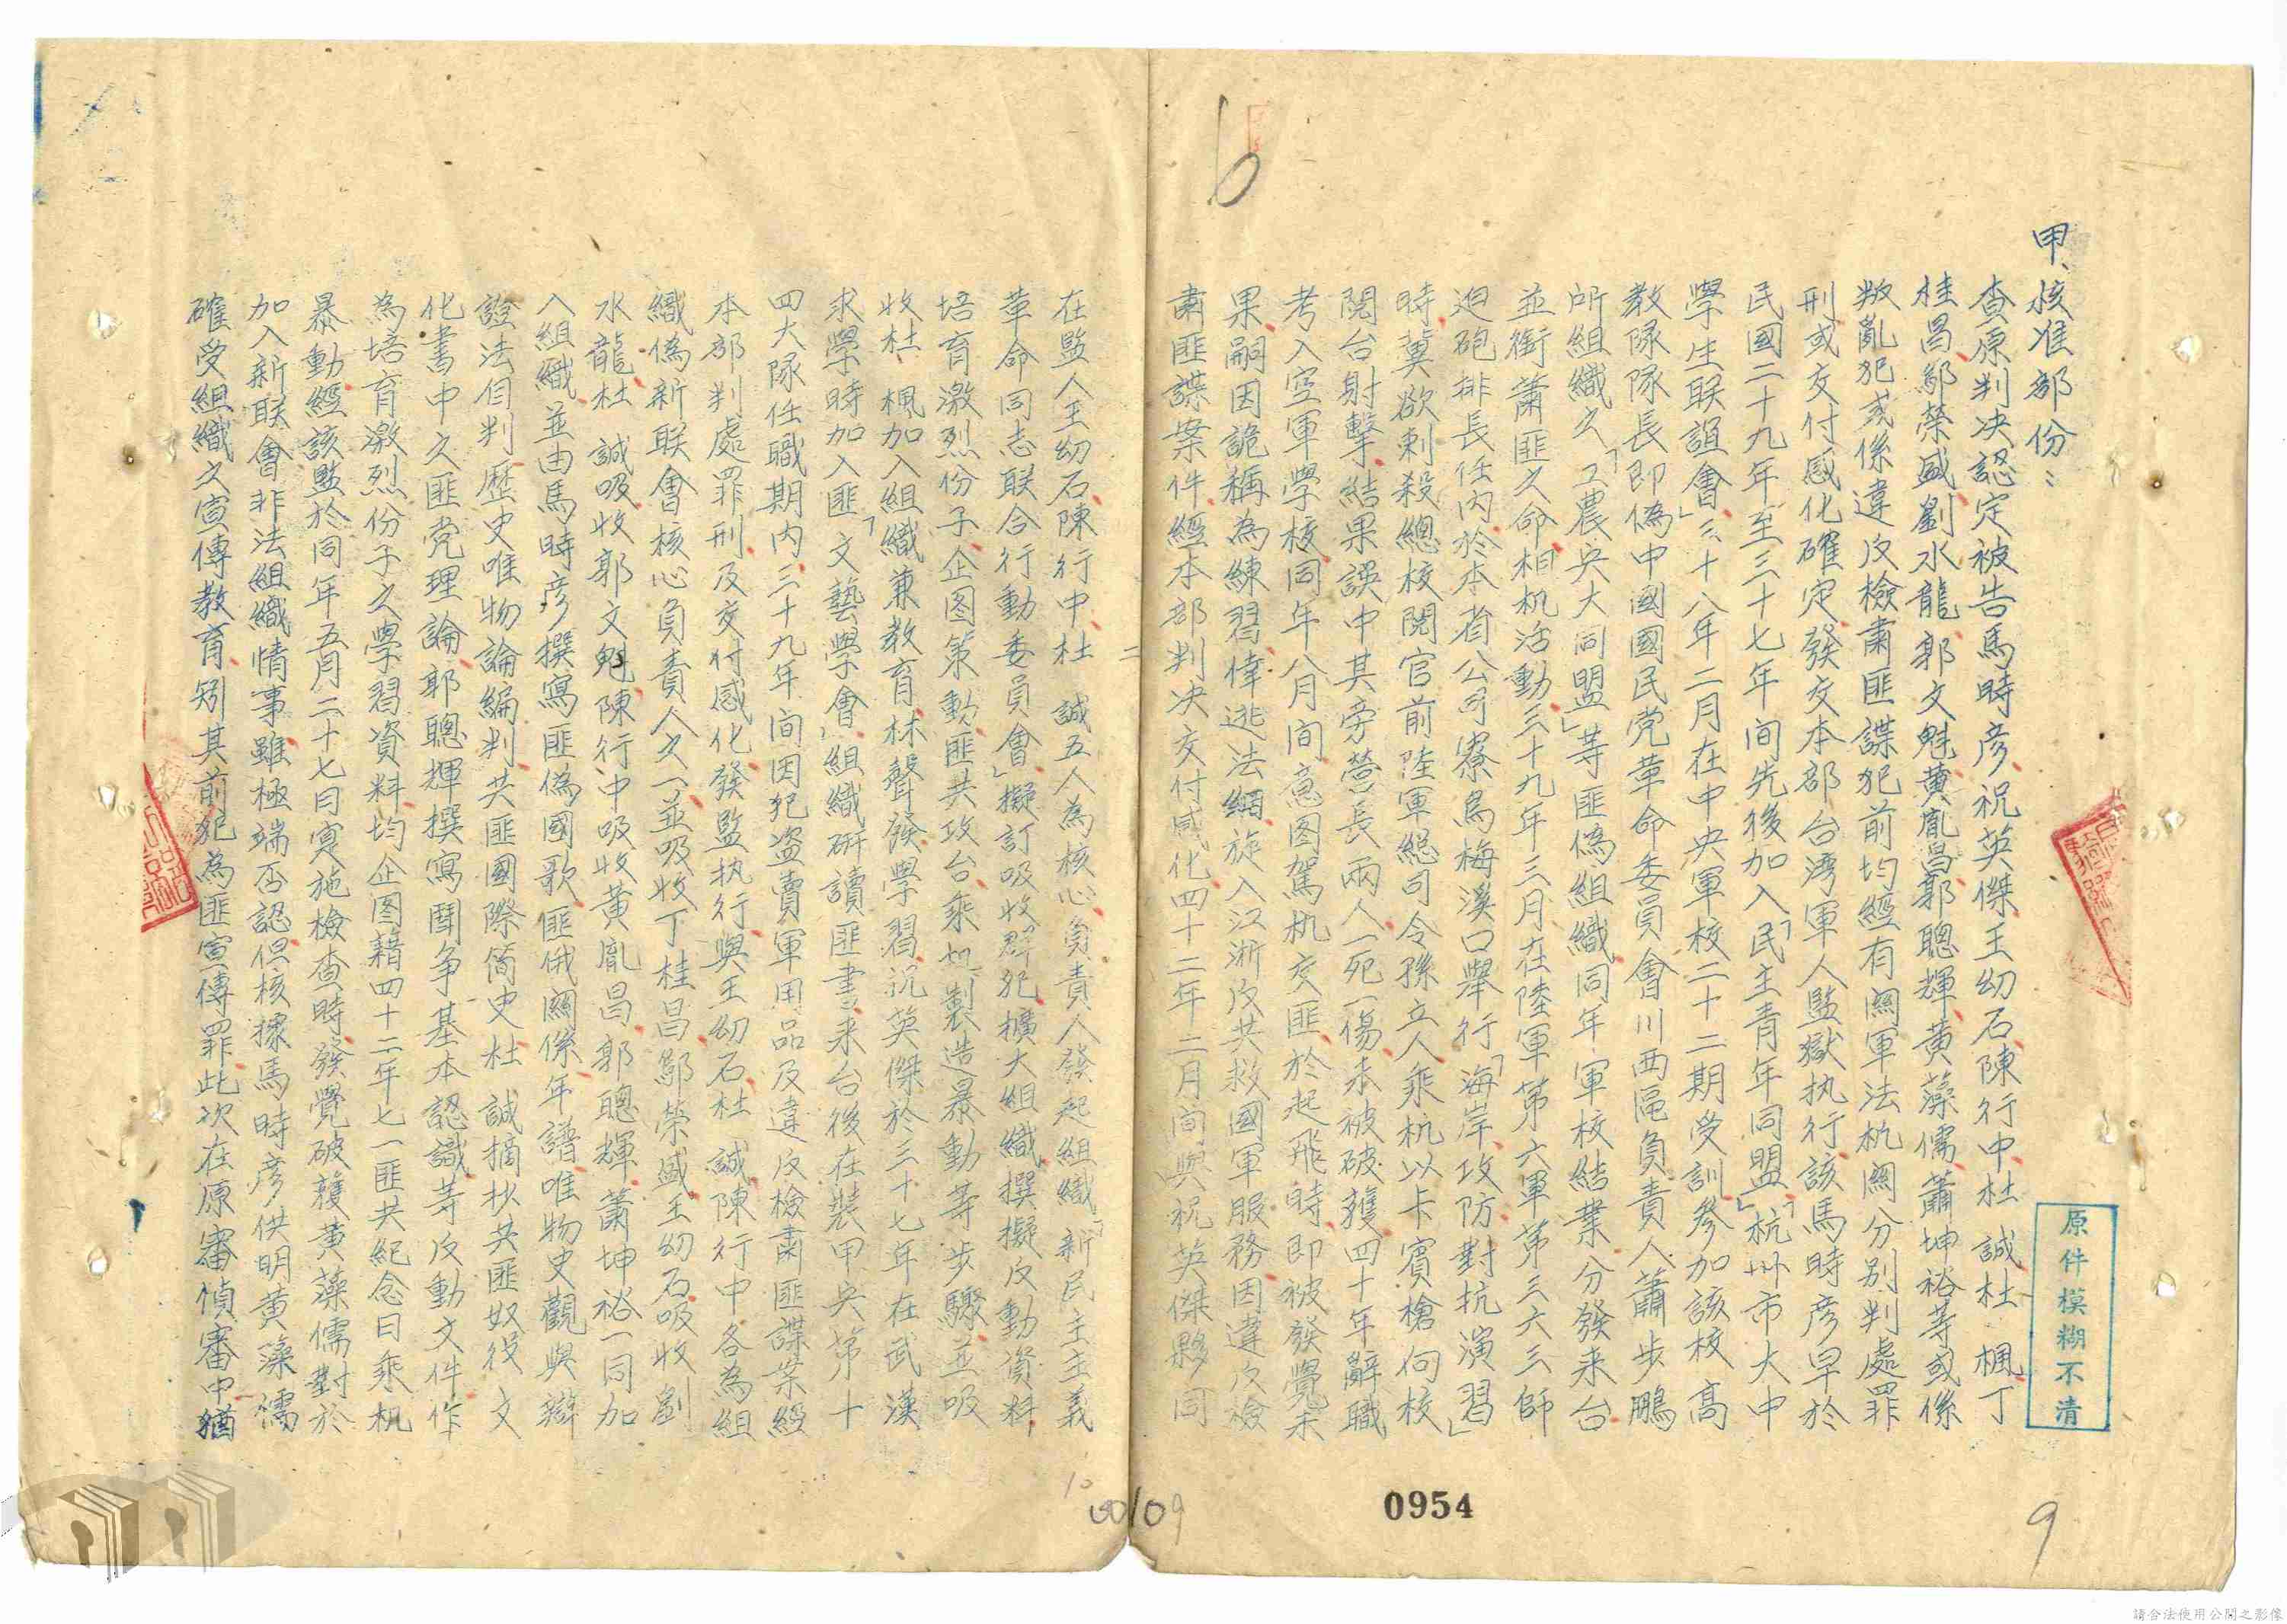 甲、核准部份：
查原判决認定被告馬時彦祝英傑王幼石陳行中杜　誠杜　楓丁
桂昌鄔榮盛劉水龍郭文魁黄胤昌郭聰輝黄藻儒蕭坤裕等或係
叛亂犯或係違反檢肅匪諜犯前均經有關軍法机關分别判處罪
刑或交付感化確定發交本部台湾軍人監獄执行該馬時彦早於
民國二十九年至三十七年间先後加入「民主青年同盟」「杭州市大中
學生联誼會」三十八年二月在中央軍校二十二期受訓參加該校高
教隊隊長即偽中國國民党革命委員會川西區負責人蕭步鵬
所組織之「工農兵大同盟」等匪偽組織同年軍校結業分發来台
並銜蕭匪之命相机活動三十九年三月在陸軍第六軍第三六三師
迫砲排長任内於本省公司寮烏梅溪口舉行「海岸攻防對抗演習」
時冀欲刺殺總校閱官前陸軍總司令孫立人乘机以卡賓槍向校
閱台射擊結果誤中其旁營長兩人一死一傷未被破獲四十年辭職
考入空軍學校同年八月间意图駕机交匪於起飛時即被發覺未
果嗣因詭稱為練習倖逃法網旋入江浙反共救國軍服務因違反檢
肅匪諜案件經本部判决交付感化四十二年二月间與祝英傑夥同
二
在監人王幼石陳行中杜　誠五人為核心負責人發起組織「新民主主義
革命同志联合行動委員會」擬訂吸收群犯擴大組織撰擬反動資料
培育激烈份子企图策動匪共攻台乘机製造暴動等步驟並吸
收杜　楓加入組織兼教育林聲發學習祝英傑於三十七年在武漢
求學時加入匪「文藝學會」組織研讀匪書来台後在裝甲兵第十
四大隊任職期内三十九年间因犯盗賣軍用品及違反檢肅匪諜案經
本部判處罪刑及交付感化發監执行與王幼石杜　誠陳行中各為組
織偽新联會核心負責人之一並吸收丁桂昌鄔榮盛王幼石吸收劉
水龍杜　誠吸收郭文魁陳行中吸收黄胤昌郭聰輝蕭坤裕一同加
入組織並由馬時彦撰寫匪偽國歌匪俄關係年譜唯物史觀與辯
證法自判歷史唯物論編判共匪國際简史杜　誠摘抄共匪奴役文
化書中之匪党理論郭聰輝撰寫鬥争基本認識等反動文件作
為培育激烈份子之學習資料均企图藉四十二年七一匪共紀念日乘机
暴動經該監於同年五月二十七日實施檢查時發覺破獲黄藻儒對於
加入新联會非法組織情事雖極端否認但核據馬時彦供明黄藻儒
確受組織之宣傳教育矧其前犯為匪宣傳罪此次在原審偵審中猶
原件模糊不清
0954
00109
9
10
請合法使用公開之影像